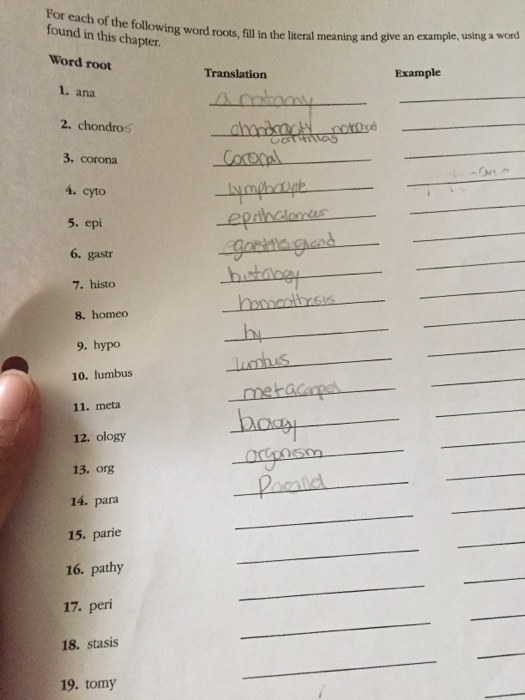 For each of the following word roots, fill in the literal meaning and give an example, using a word
found in this chapter.
Word root Translation Example
1. ana anatamy
2. chondros
3. corona Coronal
4. cyto lymphocyte
5. epi epithalamus
6. gastr gastric gland
7. histo histology
8. homeo
9. hypo hy
10. lumbus lumbus
11. meta metacarpel
12. ology biology
13. org organism
14. para
15. parie
16. pathy
17. peri
18. stasis
19. tomy